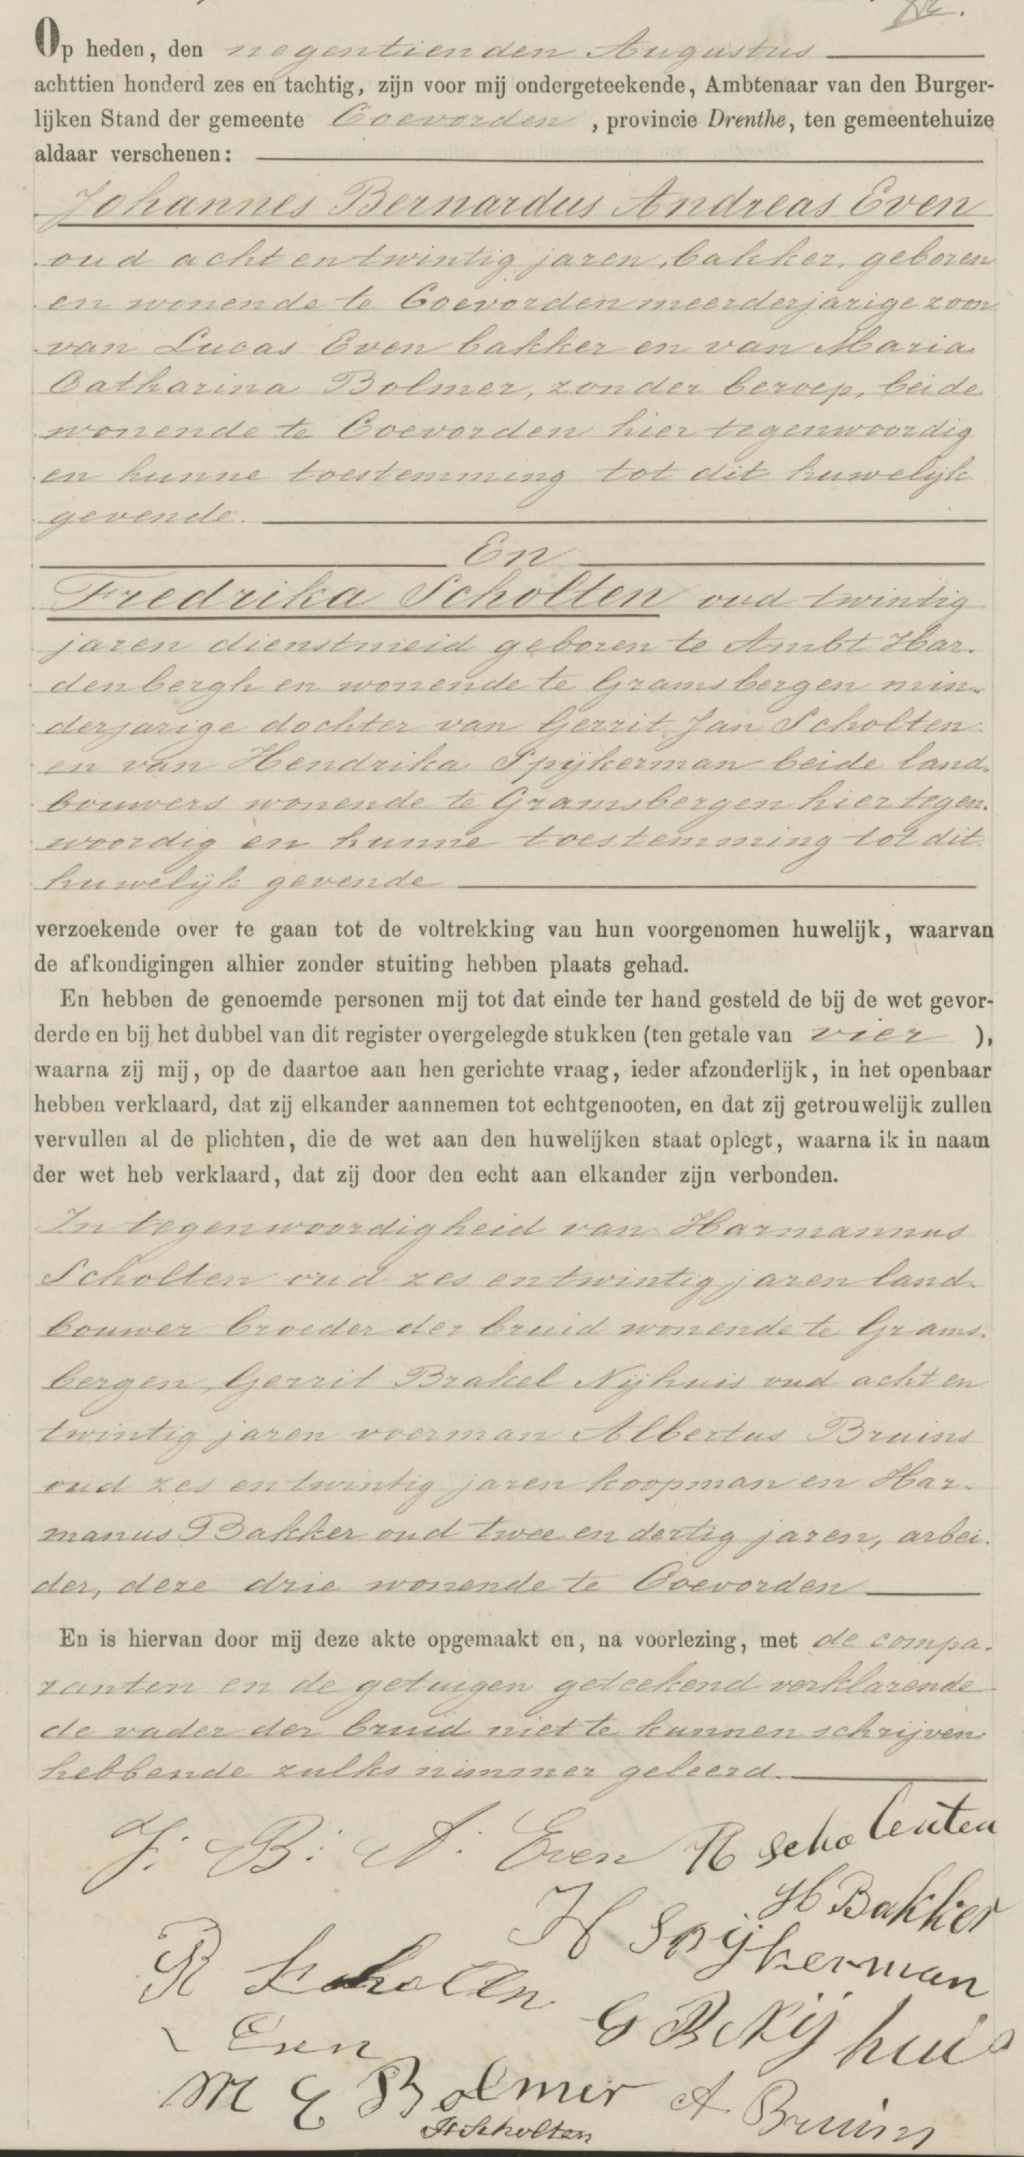 Op heden, den negentienden Augustus
achttien honderd zes en tachtig, zijn voor mij ondergeteekende, Ambtenaar van den Burger-
lijken Stand der gemeente Coevorden, provincie Drenthe, ten gemeentehuize
aldaar verschenen:
Johannes Bernardus Andreas Even
oud acht en twintig jaren, bakker, geboren
en wonende te Coevorden meerderjarige zoon
van Lucas Even bakker en van Maria
Catharina Bolmer, zonder beroep, beide
wonende te Coevorden hier tegenwoordig
en hunne toestemming tot dit huwelijk
gevende.
En
Fredrika Scholten oud twintig
jaren dienstmeid geboren te Ambt Har-
denbergh en wonende te Gramsbergen min-
derjarige dochter van Gerrit Jan Scholten
en van Hendrika Spijkerman beide land-
bouwers wonende te Gramsbergen hier tegen-
woordig en hunne toestemming tot dit
huwelijk gevende
verzoekende over te gaan tot de voltrekking van hun voorgenomen huwelijk, waarvan
de afkondigingen alhier zonder stuiting hebben plaats gehad.
En hebben de genoemde personen mij tot dat einde ter hand gesteld de bij de wet gevor-
derde en bij het dubbel van dit register overgelegde stukken (ten getale van vier ),
waarna zij mij, op de daartoe aan hen gerichte vraag, ieder afzonderlijk, in het openbaar
hebben verklaard, dat zij elkander aannemen tot echtgenooten, en dat zij getrouwelijk zullen
vervullen al de plichten, die de wet aan den huwelijken staat oplegt, waarna ik in naam
der wet heb verklaard, dat zij door den echt aan elkander zijn verbonden.
In tegenwoordigheid van Harmannus
Scholten oud zes en twintig jaren land-
bouwer broeder der bruid wonende te Grams-
bergen, Gerrit Brakel Nijhuis oud acht en
twintig jaren voerman Albertus Bruins
oud zes en twintig jaren koopman en Har-
manus Bakker oud twee en dertig jaren, arbei-
der, deze drie wonende te Coevorden
En is hiervan door mij deze akte opgemaakt en, na voorlezing, met de compa-
ranten en de getuigen geteekend verklarende
de vader der bruid niet te kunnen schrijven
hebbende zulks nimmer geleerd.
J. B. A. Even
H Bakker
H Spijkerman
R Scholten
G B Nijhuis
Even
M C Bolmer A Bruins
H Scholten